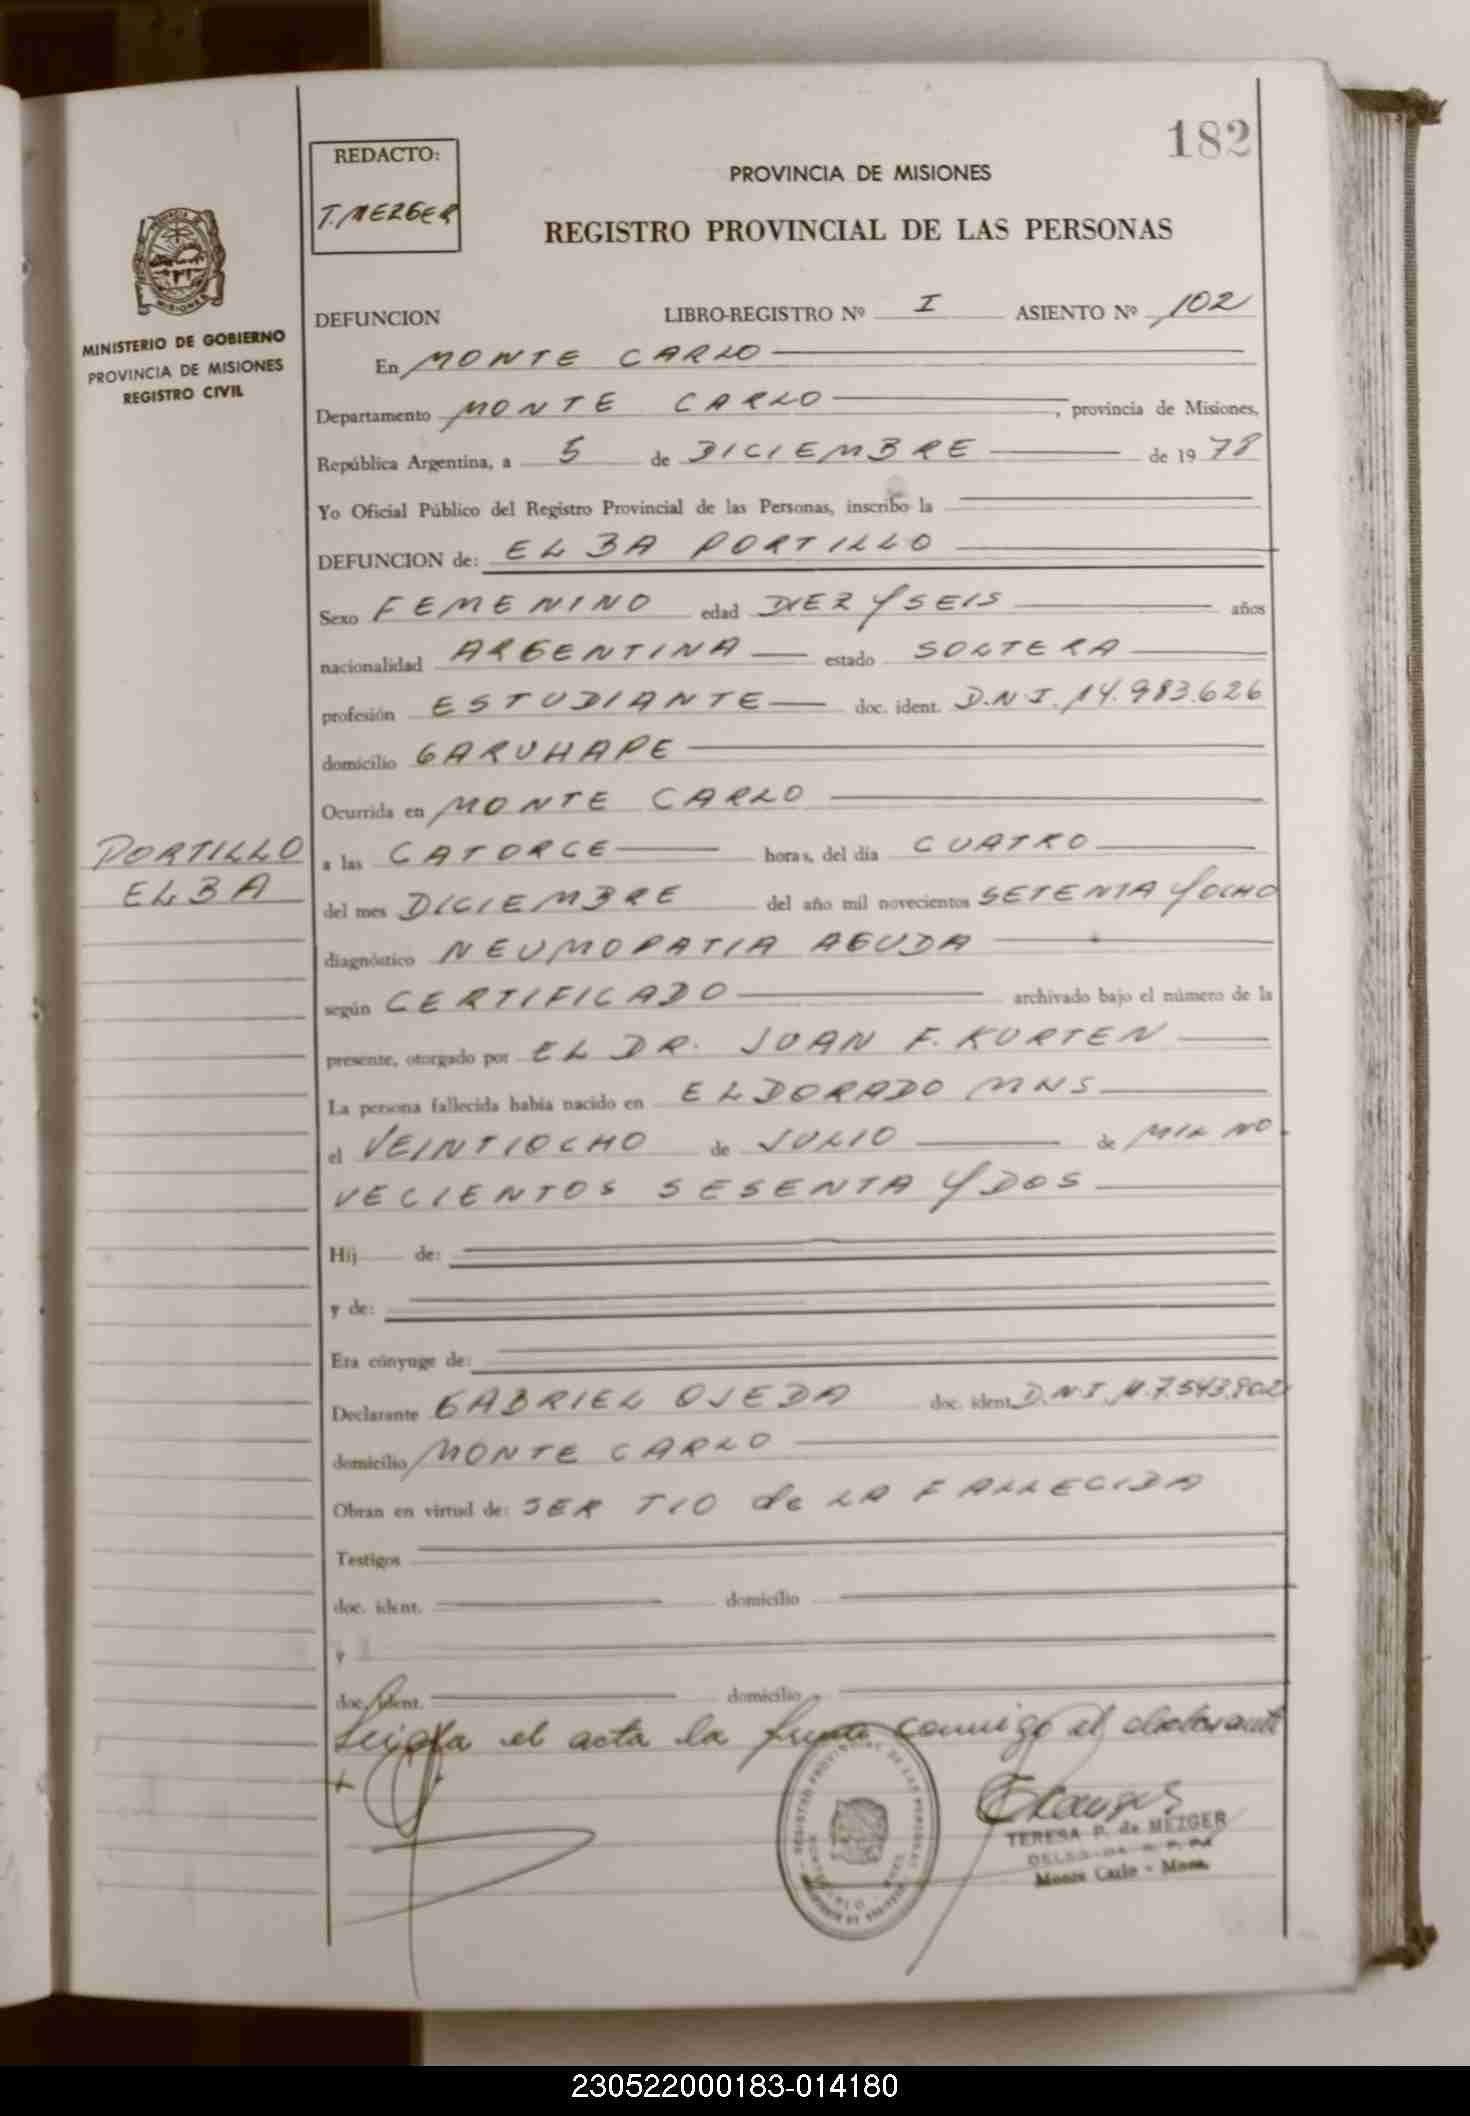 182
REDACTO:
T. MEZGER
PROVINCIA DE MISIONES
REGISTRO PROVINCIAL DE LAS PERSONAS
MINISTERIO DE GOBIERNO
PROVINCIA DE MISIONES
REGISTRO CIVIL
DEFUNCION LIBRO-REGISTRO Nº I ASIENTO Nº 102
En MONTE CARLO
Departamento MONTE CARLO, provincia de Misiones,
República Argentina, a 5 de DICIEMBRE de 1978
Yo Oficial Público del Registro Provincial de las Personas, inscribo la
DEFUNCION de: ELBA PORTILLO
Sexo FEMENINO edad DIEZ Y SEIS años
nacionalidad ARGENTINA estado SOLTERA
profesión ESTUDIANTE doc. ident. D.N.I. 14.983.626
domicilio GARUHAPE
Ocurrida en MONTE CARLO
PORTILLO
ELBA
a las CATORCE horas, del día CUATRO
del mes DICIEMBRE del año mil novecientos SETENTA Y OCHO
diagnóstico NEUMOPATIA AGUDA
según CERTIFICADO archivado bajo el número de la
presente, otorgado por EL DR. JUAN F. KURTEN
La persona fallecida había nacido en ELDORADO MNS
el VEINTIOCHO de JULIO de MIL NO
VECIENTOS SESENTA Y DOS
Hij de:
y de:
Era cónyuge de:
Declarante GABRIEL OJEDA doc. ident. D.N.I. M. 7.543.902
domicilio MONTE CARLO
Obran en virtud de: SER TIO de LA FALLECIDA
Testigos
doc. ident. domicilio
y
doc. ident. domicilio
Leida el acta la firma conmigo el declarante
TERESA P. de MEZGER
Monte Carlo - Mnes.
230522000183-014180